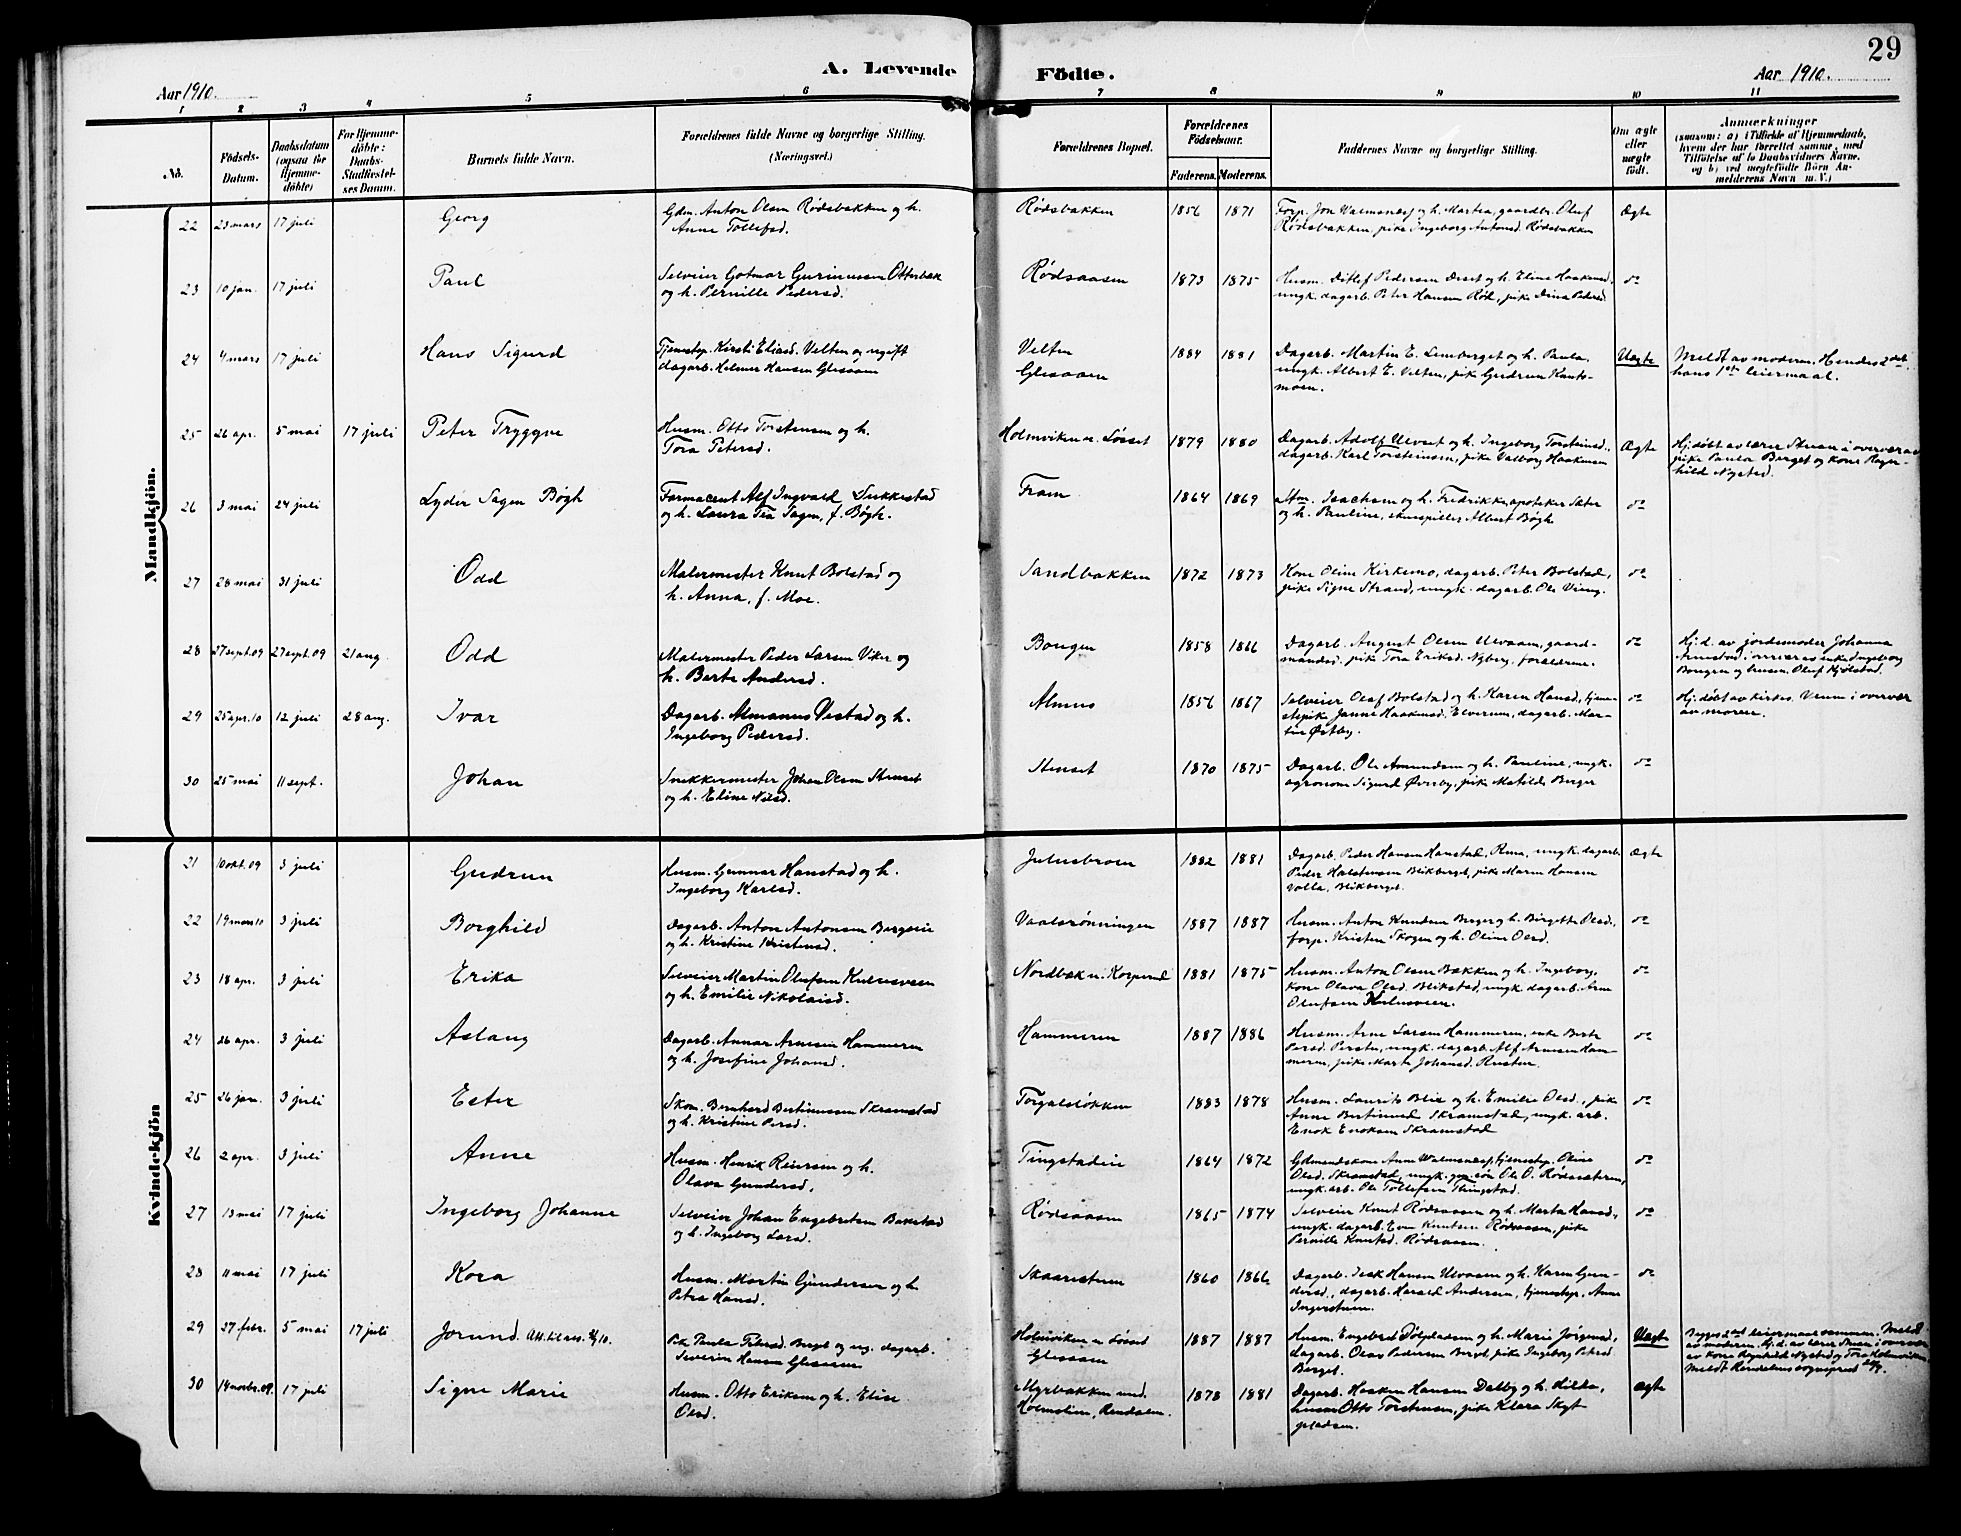 29
A. Levende Födte.
Aar 1910.
Aar 1910.
1 2 3 4 5 6 7 8 9 10 11
No.
Födsels-Datum.
Daabsdatum (ogsaa for Hjemme-döbte)
For Hjemme-döbte: Daabs-Stadfæstel-ses Datum.
Barnets fulde Navn.
Forældrenes fulde Navne og borgerlige Stilling. (Næringsvei.)
Forældrenes Bopæl.
Forældrenes Födselsaar.
Faderens. Moderens.
Faddernes Navne og borgerlige Stilling.
Om ægte eller uægte födt.
Anmærkninger
(saasom: a) i Tilfælde af Hjemmedaab, hvem der har forrettet samme, med Tilföielse af to Daabsvidners Navne, og b) ved uegtefödte Börn An-melderens Navn m. V.)
Mandkjön.
22 23 mars 17 juli Georg
Gdm. Anton Olsen Rødsbakken og h.
Anne Tollefsd.
Rødsbakken 1856 1871
Forp. Jon Valmsnæs og h. Martea, gaardbr. Oluf
Rødsbakken, pike Ingeborg Antonsd. Rødsbakken
Ægte
23 10 jan. 17 juli Paul
Selveier Gotmar Otterbæk
og h. Pernille Pedersd.
Rødsaasen 1873 1875
Husm. Ditlef Pedersen og h. Eline Haakensd.,
ungk. dagarb. Peter Hansen Rød, pike Pedersd.
do
24 4 mars 17 juli Hans Sigurd
Tjenestep. Kirsti Eliasd. Velten og ugift
dagarb. Helmer Hansen Glesaasen
Velten
Glesaasen
1884 1881
Dagarb. Martin E. Lemberget og h. Paula,
ungk. Albert E. Velten, pik Gudrun Kants-
moen.
Uægte
Meldt av moderen. Hendes 2det
hans 1ste leiermaal.
25 26 apr. 5 mai 17 juli Peter Tryggve
Husm. Otto Torstensen og h.
Tora Petersd.
Holmviken u. Løsset 1879 1880
Dagarb. Adolf Ulvset og h. Ingeborg Torsteinsd.,
dagarb. Karl Torsteinsen, pike Valborg Haakensen
Ægte
Hj. døbt av lærer Struen i overvær av
pike Paula Berget og kone Regn-
hild Nysted.
26 3 mai 24 juli Lyder Sagen Bøgh
Farmaceut Alf Ingvald Sukkestad
og h. Laura Tea Sagen, f. Bøgh.
Fram 1864 1869
Isachsen og h. Fredrikke, apoteker Sæter
og h. Pauline, skuespiller Albert Bøgh
do
27 28 mai 31 juli Odd
Malermester Knut Bolstad og
h. Anna, f. Moe.
Sandbakken 1872 1873
Kone Oline Kirkemo, dagarb. Peter Bolstad,
pike Signe Strand, ungk. dagarb. Ole
do
28 27 sept. 09 27 sept. 09 21 aug. Odd
Malermester Peder Larsen Viker og
h. Berte Andersd.
Bougen 1858 1866
Dagarb. August Olsen Ulvaaen, gaard-
mandsd. pike Tora Eriksd. Nyberg, forældrene.
do
Hj. d. av jordemoder Johanna
Arnestad i overvær av enke Ingeborg
Bougen og Oluf Kjølstad.
29 25 apr. 10 12 juli 28 aug. Ivar
Dagarb. Almanus Vestad og h.
Ingeborg Pedersd.
Almus 1856 1867
Selveier Olaf Bolstad og h. Karen Hansd., tjene-
stepik Janna Haakensd. Elverum, dagarb. Mar-
tin Østby.
do
Hj. døbt av kirkes. Venn i overvær
av moren.
30 25 mai 11 sept. Johan
Snekkermester Johan Olsen Stenset
og h. Eline Nilsd.
Stenset 1870 1875
Dagarb. Ole Amundsen og h. Pauline, ungk.
agronom Sigurd Øveby, pik Matilde Berger
do
Kvindekjön
21 10 okt. 09 3 juli Gudrun
Husm. Gunnar Hanstad og h.
Ingeborg Karlsd.
Juliusbroen 1882 1881
Dagarb. Peder Hansen Hanstad, Rena, ungk. dagarb.
Peder Halstensen Blikberget, pike Maren Hansen
volla, Blikberget.
Ægte
22 19 mars 10 3 juli Borghild
Dagarb. Anton Antonsen Bergerie
og h. Kristine Kristensd.
Vaalsrønningen 1887 1887
Husm. Anton Knudsen Berger og h. Birgitte Olsd.,
forp. Kristen Skogen og h. Oline Olsd.
do
23 18 apr. 3 juli Erika
Selveier Martin Olufsen Kulusveen
og h. Emilie Nikolaisd.
Nordbæk u. Korperud 1881 1875
Husm. Anton Olsen Bakken og h. Ingeborg,
kone Olava Olsd. Blikstad, ungk. dagarb. Arne
Olufsen Kulusveen.
do
24 26 apr. 3 juli Aslaug
Dagarb. Annar Arnesen Hammeren
og h. Josefine Johansd.
Hammeren 1887 1886
Husm. Arne Larsen Hammeren, enke Berte
Persd. ungk. dagarb. Alf Arnesen Ham-
meren, pike Marte Johansd. Rusten
do
25 26 jan. 3 juli Ester
Skom. Bernhard Bertinussen Skramstad
og h. Kristine Persd.
Torgalsløkken 1883 1878
Husm. Laurits Blie og h. Emilie Olsd., pike
Anne Bertinusd. Skramstad, ungk. arb.
Enok Enoksen Skramstad
do
26 2 apr. 3 juli Anne
Husm. Henrik Reiersen og h.
Olava Gundersd.
Tingstadeie 1864 1872
Gdmandskone Anne Valmsnæs, tjenestep. Oline
Olsd. Skramstad, ungk. gm.søn Ole O. Rødssæteren,
ungk. arb. Ole Tollefsen Thingstad.
do
27 13 mai 17 juli Ingeborg Johanne
Selveier Johan Engebretsen Bækstad
og h. Ingeborg Larsd.
Rødsaasen 1865 1874
Selveier Knut Rødsaasen og h. Marte Hansd.,
ungk. dagarb. Even Knutsen Rødsaasen, pike
Pernille Knutsd. Rødsaasen.
do
28 11 mai 17 juli Kora
Husm. Martin Gundersen og h.
Petra Hansd.
Skaaristuen 1860 1866
Dagarb. Isak Hansen Ulvaaen og h. Karen Gun-
dersd., dagarb. Harald Andersen, tjenestep. Anne
Ingerstuen.
do
29 27 febr. 5 mai 17 juli Jorund. Att. til
Pik. Paula Petersd. Berget og ug. dagarb.
Severin Hansen Glesaasen
Holmviken u. Løsset
Glesaasen
1887 1887
Husm. Engebret Dølpladsen og h. Marie Jørgensd.,
dagarb. Olav Pedersen Berget, pike Ingeborg Petersd.
Berget.
Uægte
Begges 2det leiermaal sammen. Meldt
av moderen. Hj. d. av lærer Struen i overvær
av kone Regnhild Nysted og Tora Holmviken.
Meldt Rendalens sogneprest
30 14 novbr. 09. 17 juli Signe Marie
Husm. Otto Eriksen og h. Elise
Olsd.
Myrbakken und.
Holmolien, Rendalen.
1878 1881
Dagarb. Haaken Hansen Dalby og h. Hilda,
husm. Otto Torstensen, pike Klara Skyt-
pladsen.
Ægte